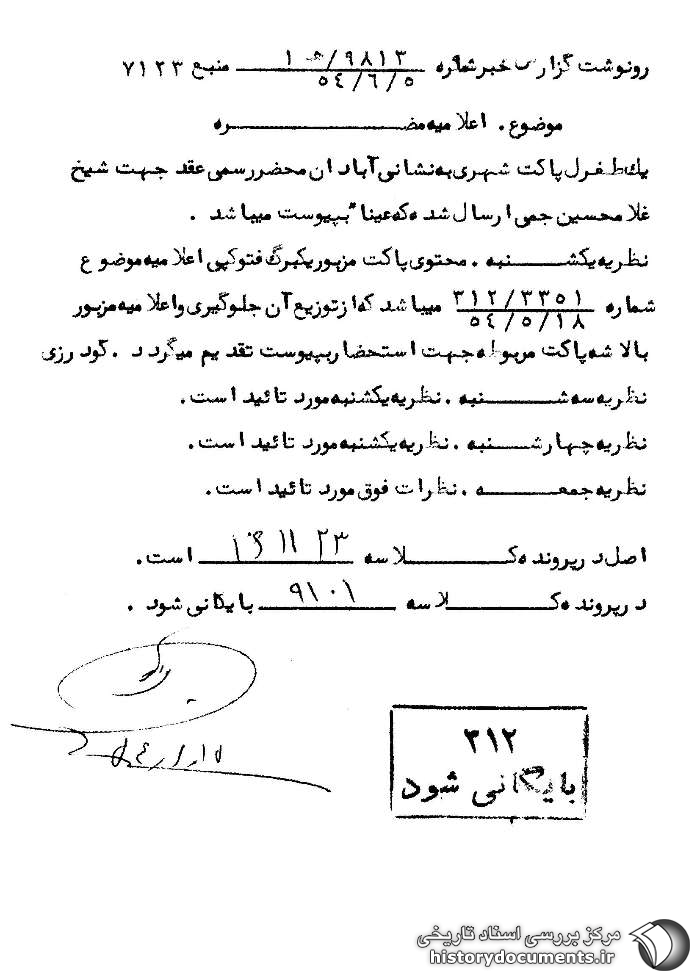 رونوشت گزارش خبر شماره ۹۸۱۳/ ۱۰ه منبع ۷۱۲۳
۵۴/۶/۵
موضوع . اعلامیه مضـــــره
یك طغرل پاکت شهری به نشانی آبادان محضر رسمی عقد جهت شیخ
غلامحسین جمی ارسال شده که عینا" بپیوست میباشد .
نظریه یکشـــنبه . محتوی پاکت مزبور یکبرگ فتوکپی اعلامیه موضوع
شماره ۳۱۲/۳۳۵۱ میباشد که از توزیع آن جلوگیری و اعلامیه مزبور
۵۴/۵/۱۸
بالاشه پاکت مربوطه جهت استحضار بپیوست تقدیم میگردد . کودرزی
نظریه سه شـــنبه . نظریه یکشنبه مورد تائید است .
نظریه چهارشـــنبه . نظریه یکشنبه مورد تائید است .
نظریه جمعـــه . نظرات فوق مورد تائید است .
اصل در پرونده کـــلاسه ۲۳ است .
در پرونده کـــلاسه ۹۱۰۱ بایگانی شود .
۳۱۲
بایگانی شود
مرکز بررسی اسناد تاریخی
historydocuments.ir